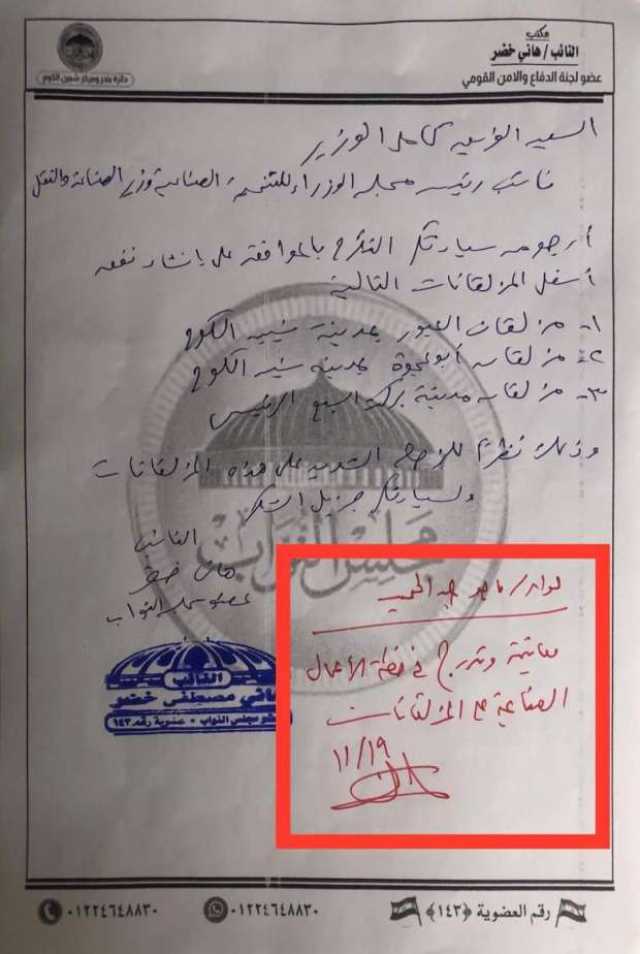 مكتب
النائب / هاني خضر
عضو لجنة الدفاع والامن القومي
دائرة بندر ومركز شبين الكوم
السيد الفريق كامل الوزير
نائب رئيس مجلس الوزراء للتنمية الصناعية وزير الصناعة والنقل
أرجو من سيادتكم التكرم بالموافقة على إنشاء نفق
أسفل المزلقانات التالية
١- مزلقان العبور بمدينة شبين الكوم
٢- مزلقان أبو تجوة بمدينة شبين الكوم
٣- مزلقان مدينة بركة السبع الرئيسي
وذلك نظراً للزحام الشديد على هذه المزلقانات
ولسيادتكم جزيل الشكر
النائب
هاني خضر
عضو مجلس النواب
مجلس النواب
النائب
هاني مصطفى خضر
عضو مجلس النواب - عضوية رقم ١٤٣
لواء / ماجد عبد الحميد
معاينة وتدرج في خطة الأعمال
الصناعية على المزلقانات
١١/١٩
رقم العضوية ﴿١٤٣﴾
٠١٢٢٤٦٤٨٨٣٠
٠١٢٢٤٦٤٨٨٣٠